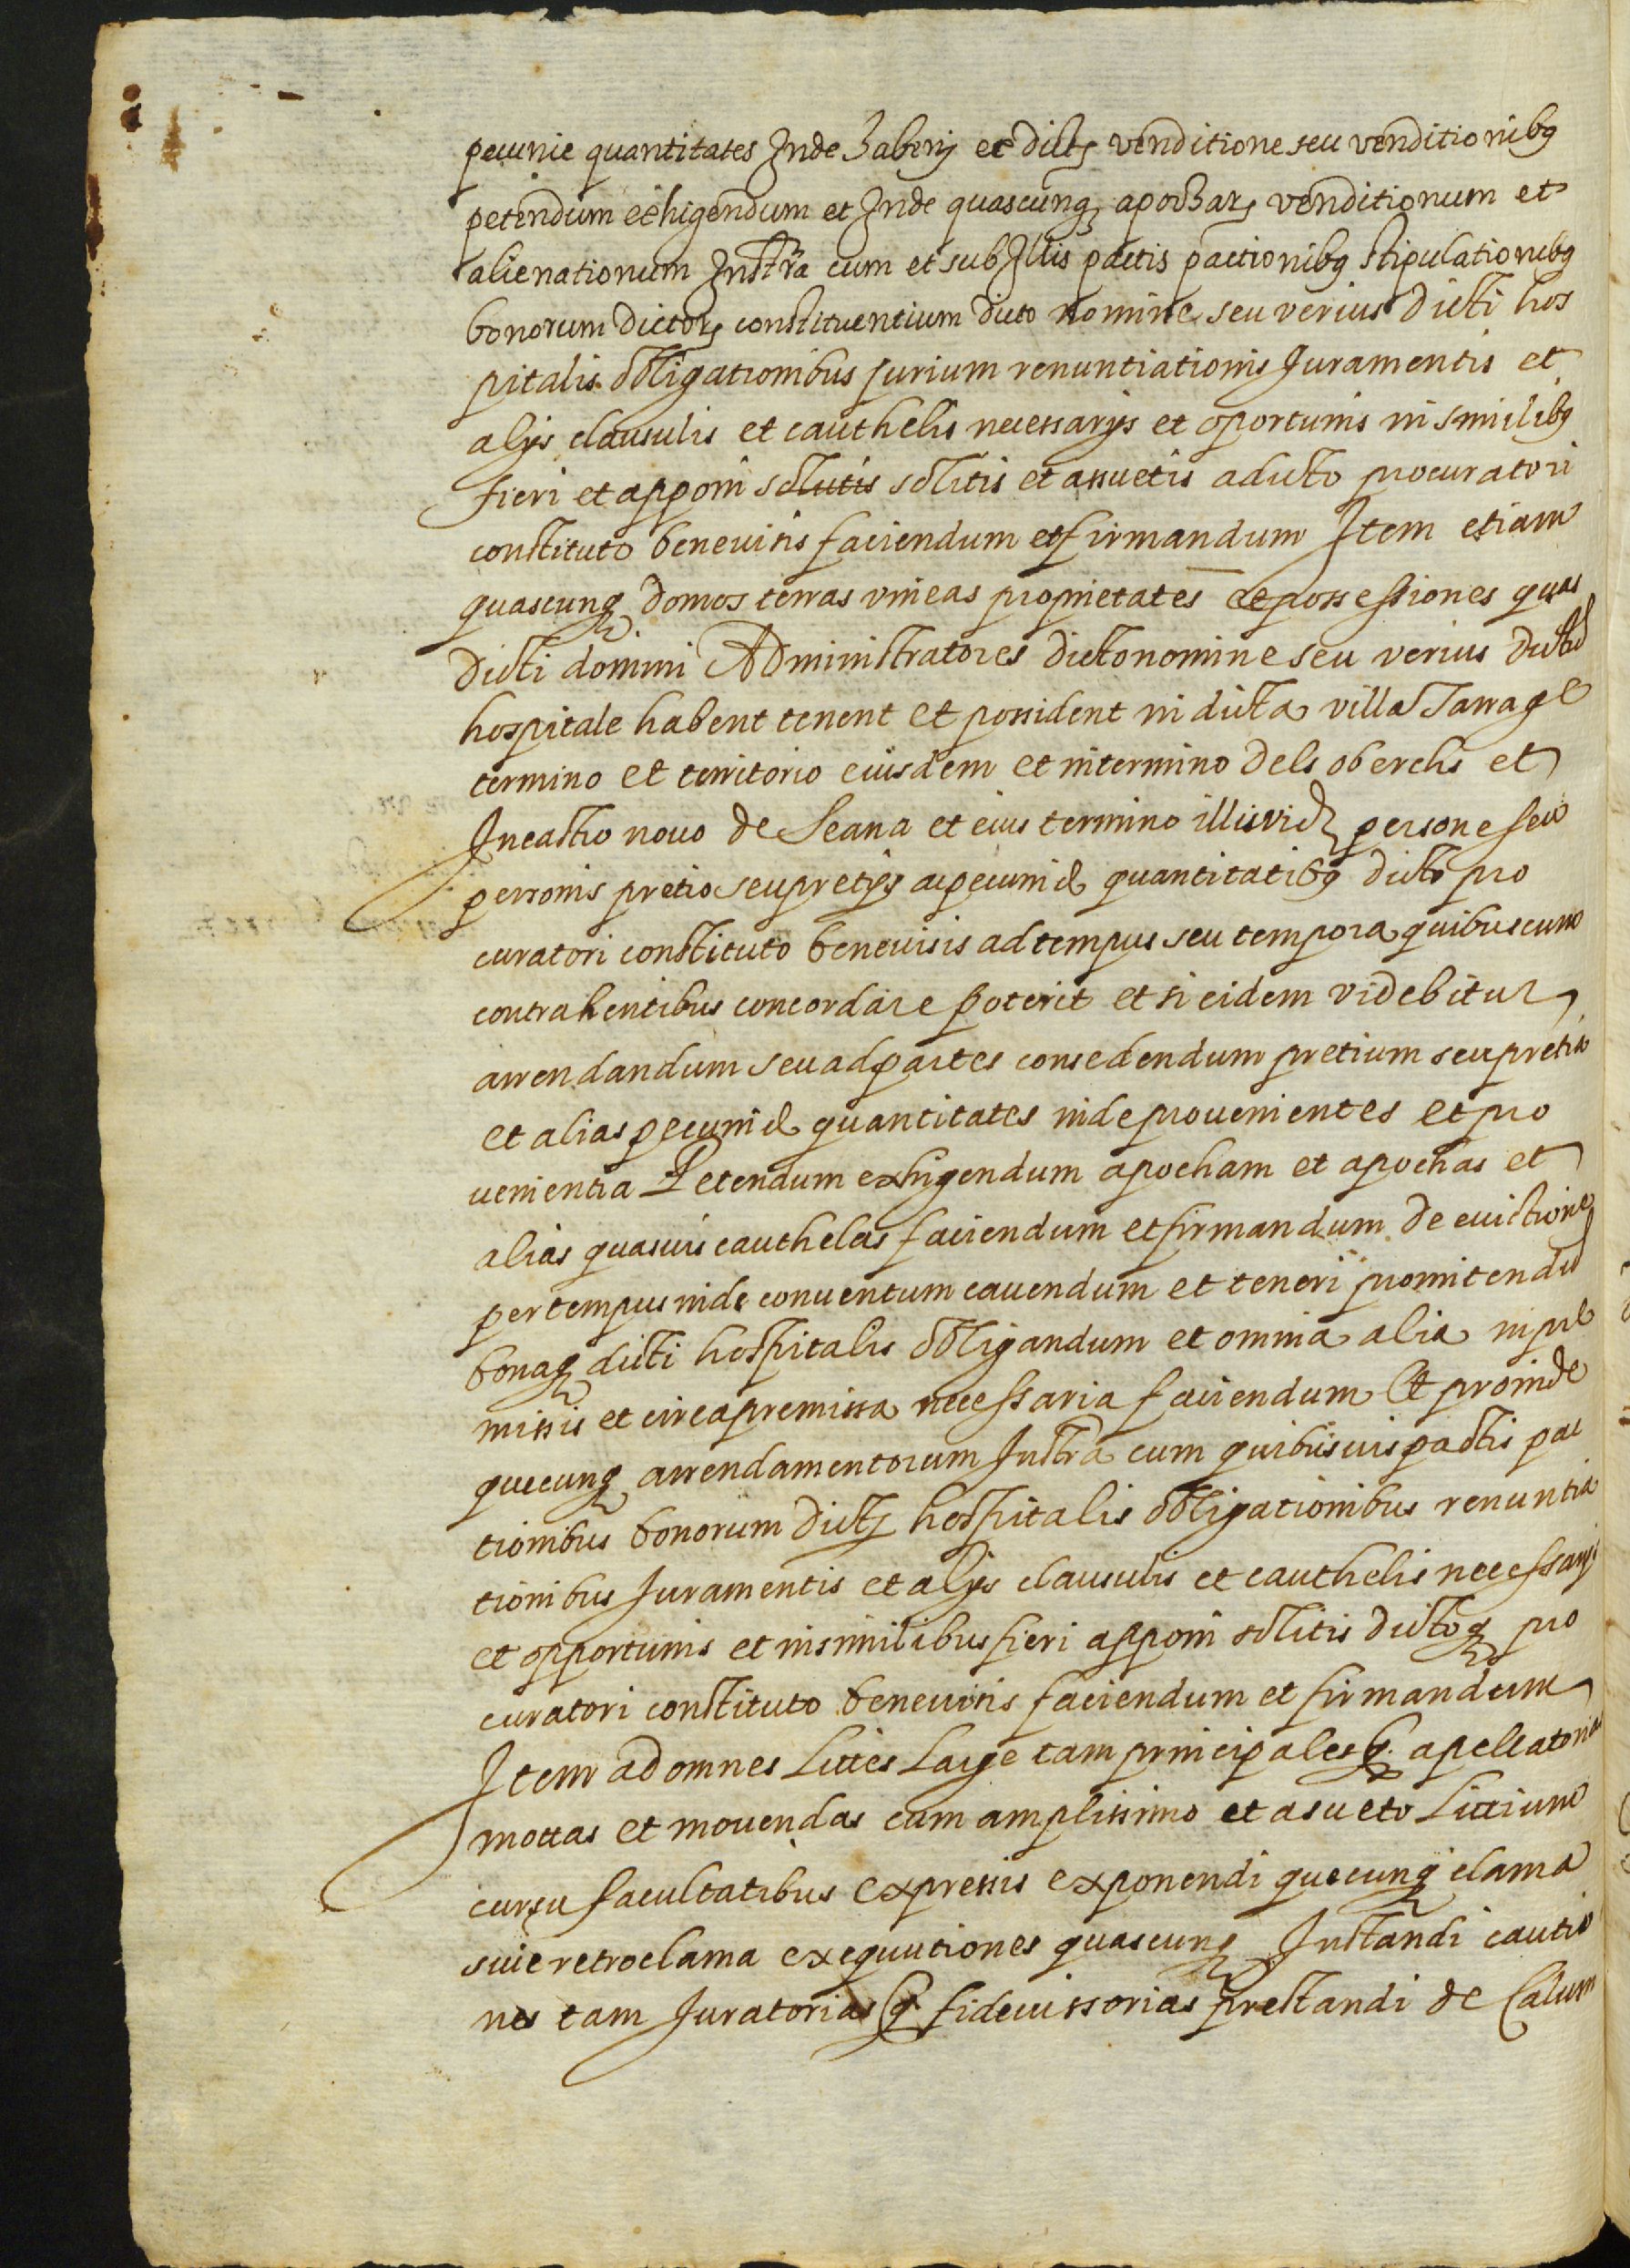 pecunie quantitates Inde haberj et dictj venditione seu venditionibq
petendum exhigendum et Inde quascunq apocharj venditionum et
alienationum Instra cum et sub Illis pactis pactionibq stipulationibq
bonorum dictorj constituentium dicto nomine seu verius dicti hos
pitalis obligationibus jurium renuntiationis Juramentis et
alijs clausulis et cauthelis necessarijs et oportunis in similibq
fieri et apponi solutis solitis et assuetis a dicto procuratori
constituto benevisis faciendum et firmandum Item etiam
quascunq domos terras vineas proprietates et possessiones quas
dicti domini Administratores dicto nomine seu verius dictu
hospitale habent tenent et possident in dicta villa Tarrage
termino et territorio eiusdem et in termino dels oberchs et
In castro novo de Seana et eius termino illis vid persone seu
personis pretio seu pretijs ac pecunie quantitatibq dicto pro
curatori constituto benevisis ad tempus seu tempora quibus cum
contrahentibus concordare poterit et si eidem videbitur
arrendandum seu ad partes consedendum pretium seu pretia
et alias pecunie quantitates inde provenientes et pro
venientia Petendum exhigendum apocham et apochas et
alias quasvis cauthelas faciendum et firmandum de evictione
per tempus inde conventum cavendum et teneri promitendu
bonaq dicti hospitalis obligandum et omnia alia in pre
missis et circa premissa necessaria faciendum Et proinde
quecunq arrendamentorum Instra cum quibusvis pactis pac
tionibus bonorum dictj hospitalis obligationibus renuntia
tionibus Juramentis et alijs clausulis et cauthelis necessarijs
et opportunis et in similibus fieri apponi solitis dictoq pro
curatori constituto benevisis faciendum et firmandum
Item ad omnes Lites Large tam principales q apellatorias
mottas et movendas cum amplissimo et asueto Littium
cursu facultatibus expressis exponendi quecunq clama
sive retroclama exequutiones quascunq Instandi cautio
nes tam Juratorias q fideiussorias prestandi de Calum